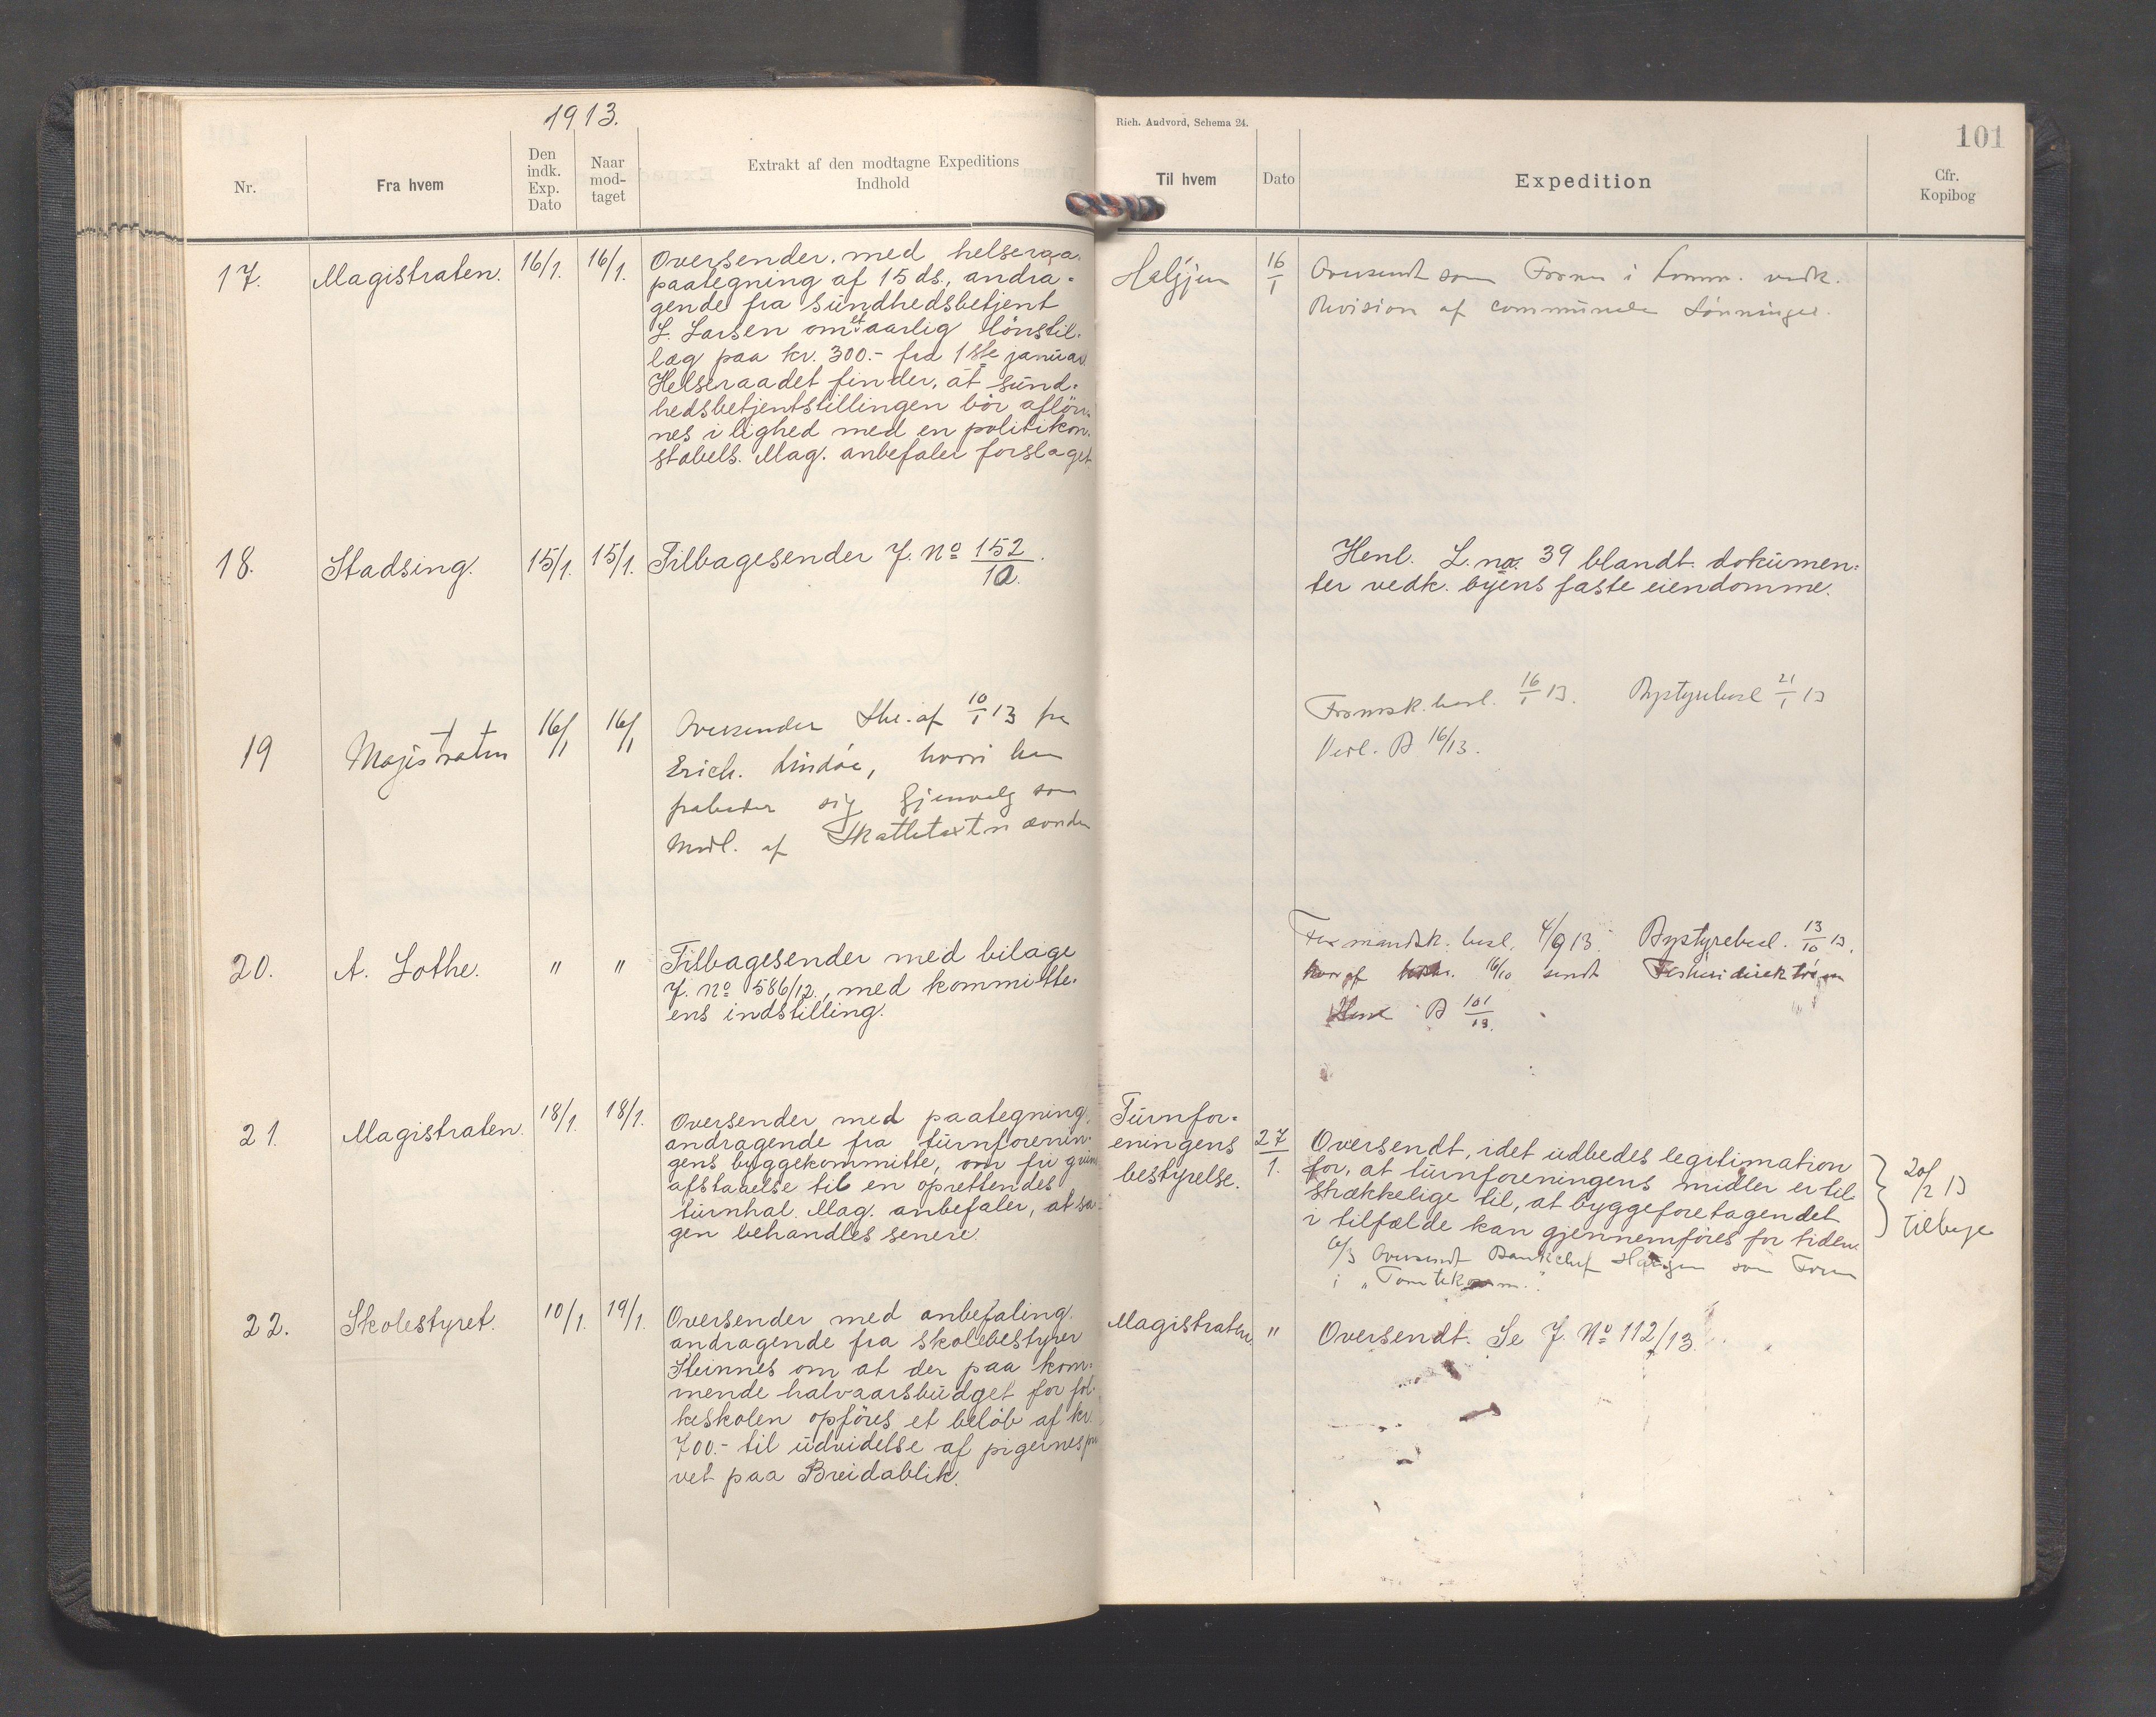 1913.
Nr.
Fra hvem
Den indk. Exp. Dato
Naar mod- taget
Extrakt af den modtagne Expeditions Indhold
Rich. Andvord, Schema 24.
Til hvem
Dato
Expedition
Cfr. Kopibog
101
17. Magistraten. 16/1. 16/1.
Oversender, med helseraa.
paategning af 15 ds., andra-
gende fra sundhedsbetjent
L. Larsen om et aarlig lönstil-
læg paa kr. 300.- fra 1ste januar.
Helseraadet finder, at sund-
hedsbetjentstillingen bör aflön-
nes i lighed med en politikon-
stabels. Mag. anbefaler forslaget.
16/1 Oversendt som Form i Komm. vedk.
Revision af communale Lønninger.
18. Stadsing. 15/1. 15/1. Tilbagesender J. No 152/10.
Henl. L. no. 39 blandt dokumen-
ter vedk. byens faste eiendomme.
19 Magistraten 16/1 16/1
Oversender Skr. af 10/1 13 fra
Erich. Lindøe, hvori han
frabeder sig Gjenvalg som
Medl. af Skattetaxtnævnden
Formsk. besl. 16/1 13. Bystyrebesl 21/1 13
Vedl. B 16/13.
20. A. Lothe. " "
Tilbagesender med bilage
J. No 586/12, med kommitte-
ens indstilling.
Formandsk. besl. 4/9 13. Bystyrebesl. 13/10 13.
16/10 sendt
B 101/13.
21. Magistraten. 18/1. 18/1.
Oversender med paategning,
andragende fra turnforenin-
gens byggekommitte, om fri grun
afstaaelse til en oprettendes
turnhal. Mag. anbefaler, at sa-
gen behandles senere.
Turnfor-
eningens
bestyrelse.
27/1.
Oversendt, idet udbedes legitimation
for, at turnforeningens midler er til-
strækkelige til, at byggeforetagendet
i tilfælde kan gjennemföres for tiden.
6/3 Oversendt Bankchef som Form
i "Tomtekomm."
20/2 13
tilbage
22. Skolestyret. 10/1. 19/1.
Oversender med anbefaling.
andragende fra skolebestyrer
Steinnes om at der paa kom-
mende halvaarsbudget for fol-
keskolen opföres et belöb af kr.
700.- til udvidelse af pigernes pri
vet paa Breidablik.
Magistraten. " Oversendt. Se J. No 112/13.